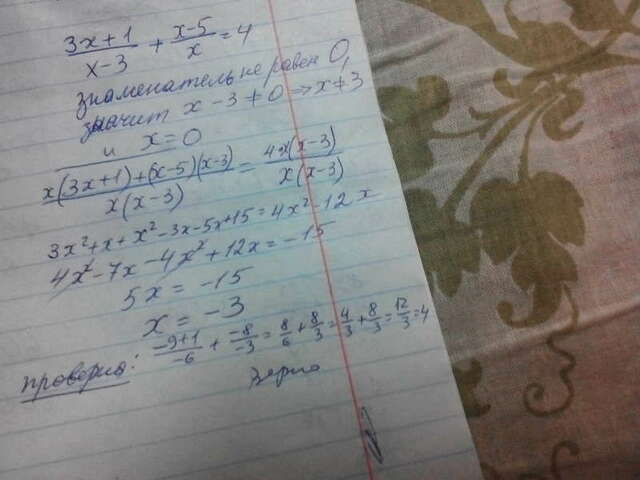 3x+1/x-3 + x-5/x = 4
знаменатель не равен 0,
значит x-3≠0 => x≠3
и x=0
x(3x+1)+(x-5)(x-3)/x(x-3) = 4x(x-3)/x(x-3)
3x²+x+x²-3x-5x+15=4x²-12x
4x²-7x-4x²+12x=-15
5x=-15
x=-3
проверка: -9+1/-6 + -8/-3 = 8/6 + 8/3 = 4/3 + 8/3 = 12/3 = 4
Верно